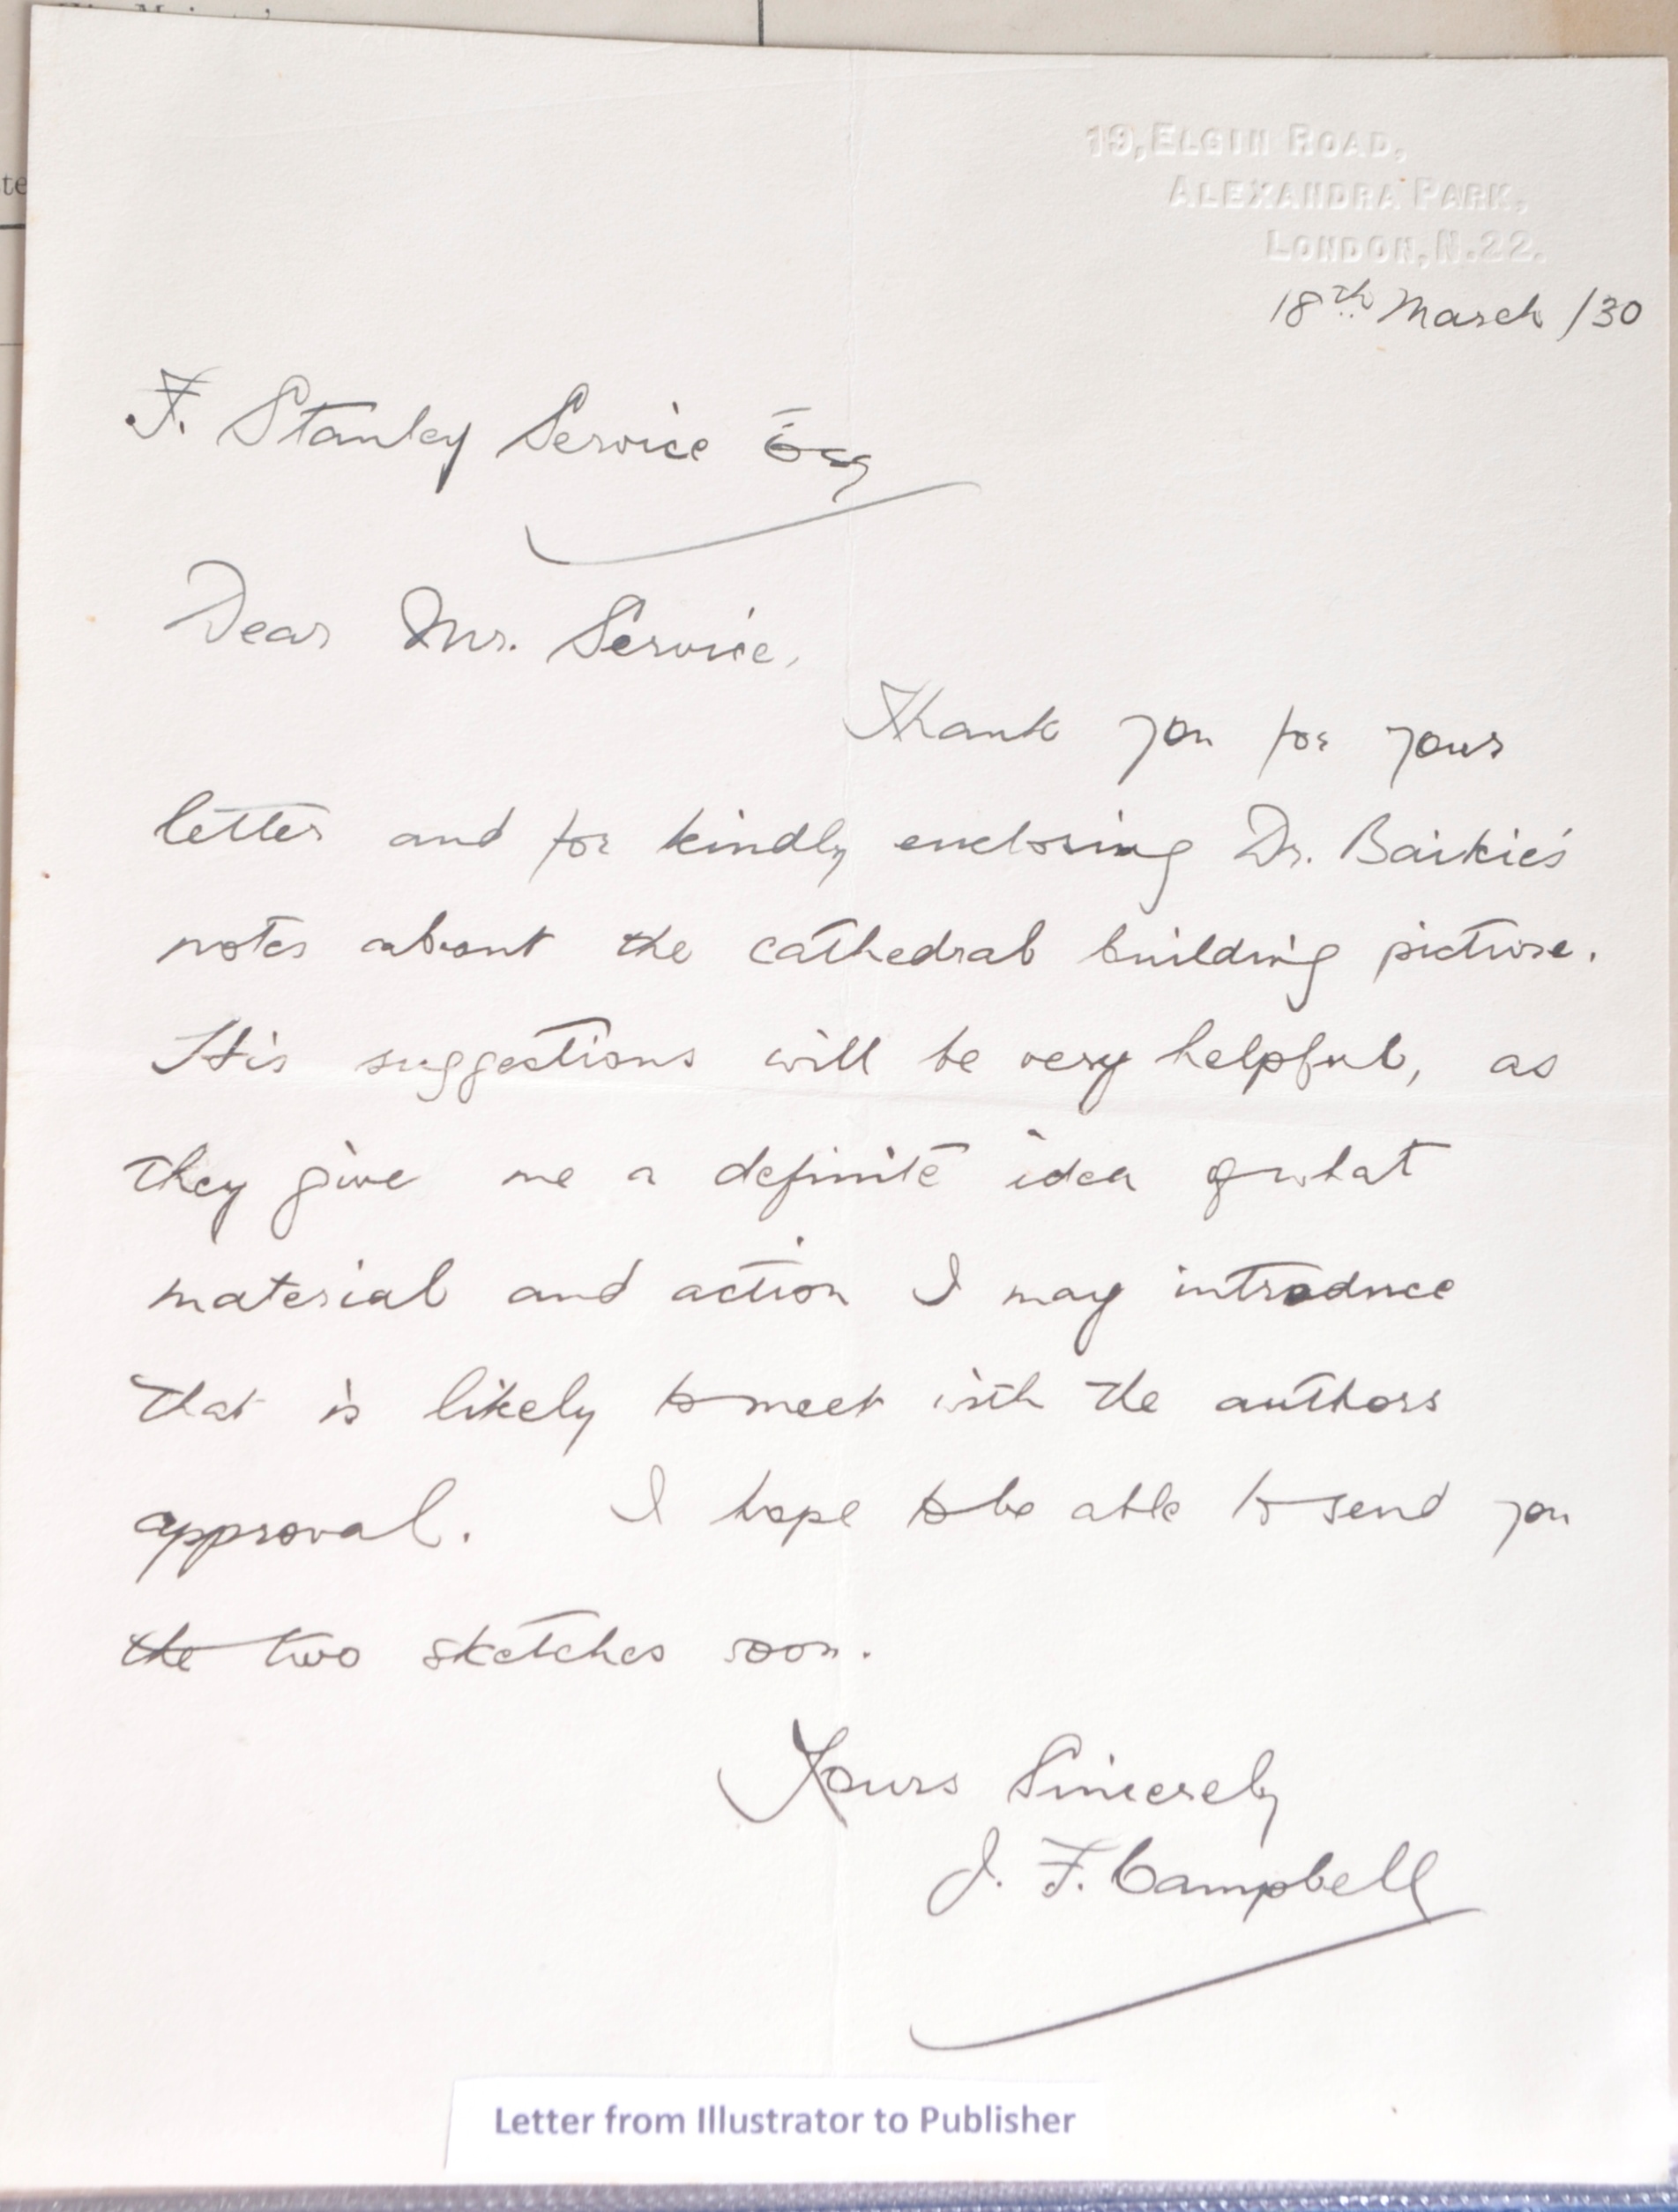 19, ELGIN ROAD,
ALEXANDRA PARK,
LONDON, N.22.
18th March /30
F. Stanley Service Esq
Dear Mr. Service,
Thank you for your
letter and for kindly enclosing Dr. Baikie's
notes about the cathedral building picture.
His suggestions will be very helpful, as
they give me a definite idea of what
material and action I may introduce
that is likely to meet with the authors
approval. I hope to be able to send you
the two sketches soon.
Yours Sincerely
J. F. Campbell
Letter from Illustrator to Publisher